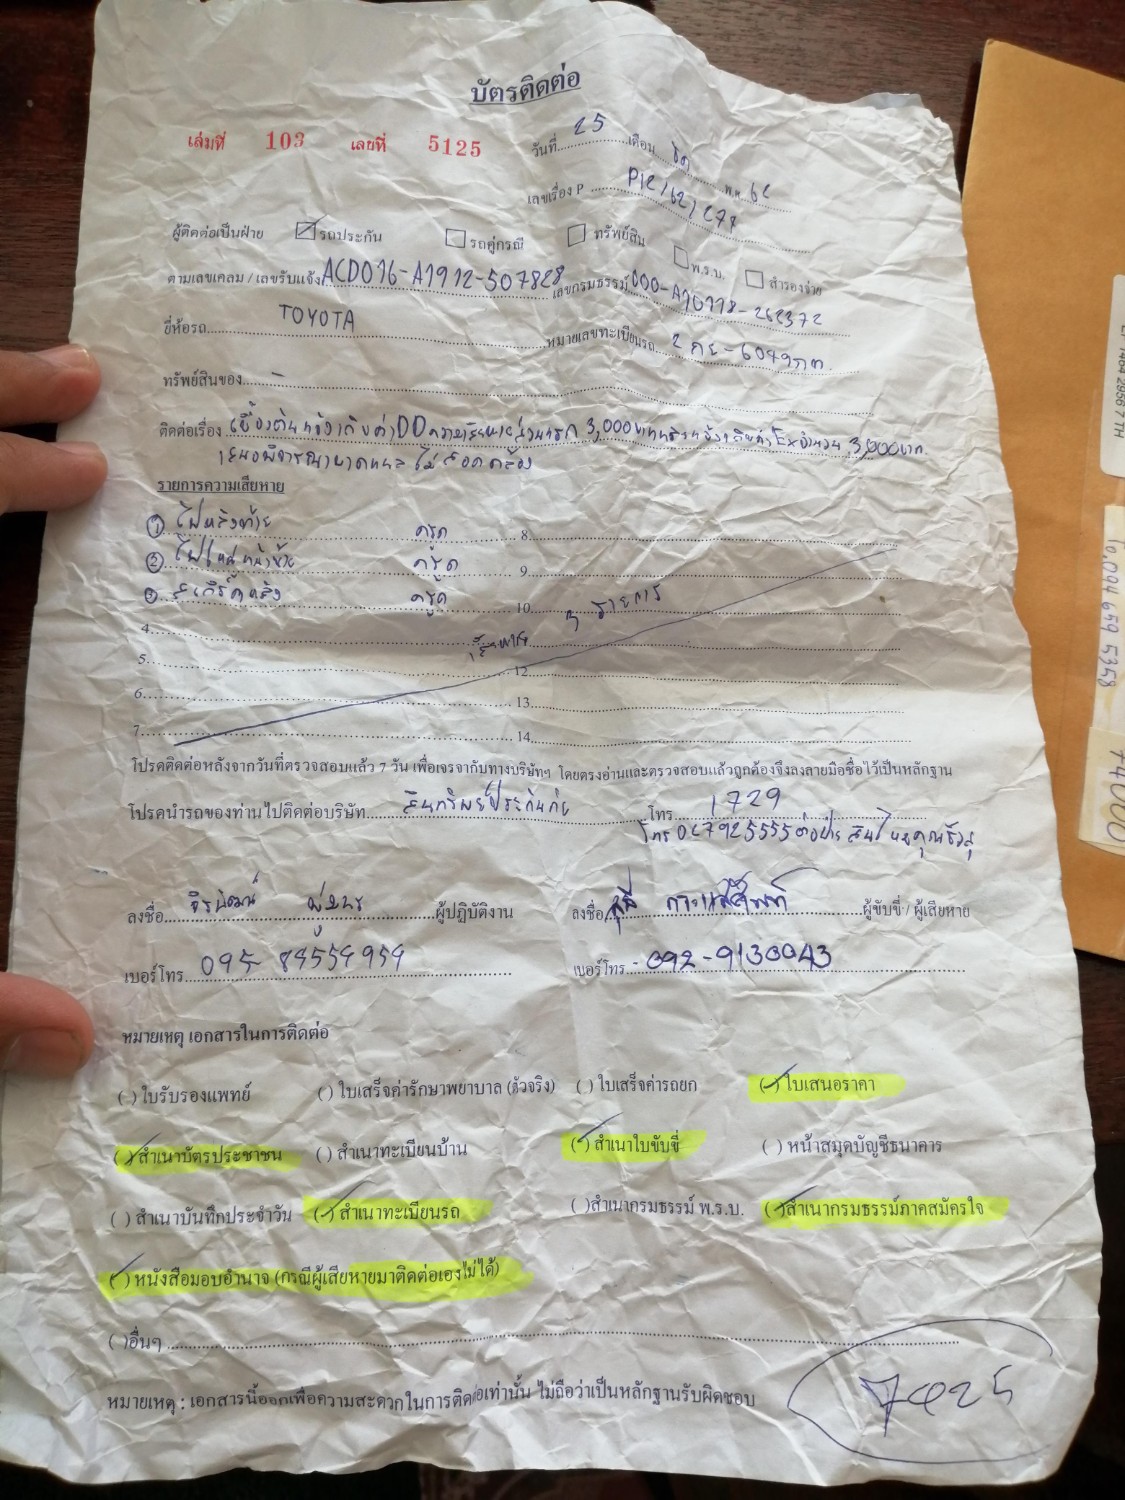 บัตรติดต่อ
เล่มที่ 103 เลขที่ 5125
วันที่ 25 เดือน ธค พ.ศ. 62
เลขเรื่อง P P12/62/277
ผู้ติดต่อเป็นฝ่าย รถประกัน รถคู่กรณี ทรัพย์สิน พ.ร.บ. สำรองจ่าย
ตามเลขเคลม / เลขรับแจ้ง ACD016-A1912-507828 เลขกรมธรรม์ 000-A10118-262372
ยี่ห้อรถ TOYOTA หมายเลขทะเบียนรถ 2 กย-6049 ภก.
ทรัพย์สินของ -
ติดต่อเรื่อง เบื้องต้นแจ้งเก็บค่า DD ความเสียหายส่วนแรก 3,000 บาท 3,000 บาท.
เสนอพิจารณาบาดแผลไม่สอดคล้อง
รายการความเสียหาย
1 ไฟหลังท้าย ครูด 8
2 ครูด 9
3 สเกิร์ตหลัง ครูด 10
4 เสียหาย 3 รายการ
5 12
6 13
7 14
โปรดติดต่อหลังจากวันที่ตรวจสอบแล้ว 7 วัน เพื่อเจรจากับทางบริษัทฯ โดยตรงอ่านและตรวจสอบแล้วถูกต้องจึงลงลายมือชื่อไว้เป็นหลักฐาน
โปรดนำรถของท่านไปติดต่อบริษัท สินทรัพย์ประกันภัย โทร 1729
โทร 027925555 ต่อฝ่ายสินไหม
ลงชื่อ จิรพัฒน์ ผู้ปฏิบัติงาน ลงชื่อ ผู้ขับขี่ / ผู้เสียหาย
เบอร์โทร 095 84554954 เบอร์โทร 092-9130043
หมายเหตุ เอกสารในการติดต่อ
( ) ใบรับรองแพทย์ ( ) ใบเสร็จค่ารักษาพยาบาล (ตัวจริง) ( ) ใบเสร็จค่ารถยก (✓) ใบเสนอราคา
(✓) สำเนาบัตรประชาชน ( ) สำเนาทะเบียนบ้าน (✓) สำเนาใบขับขี่ ( ) หน้าสมุดบัญชีธนาคาร
( ) สำเนาบันทึกประจำวัน (✓) สำเนาทะเบียนรถ ( ) สำเนากรมธรรม์ พ.ร.บ. (✓) สำเนากรมธรรม์ภาคสมัครใจ
(✓) หนังสือมอบอำนาจ (กรณีผู้เสียหายมาติดต่อเองไม่ได้)
( ) อื่นๆ
หมายเหตุ : เอกสารนี้ออกเพื่อความสะดวกในการติดต่อเท่านั้น ไม่ถือว่าเป็นหลักฐานรับผิดชอบ
7425
2956 7 TH
74000